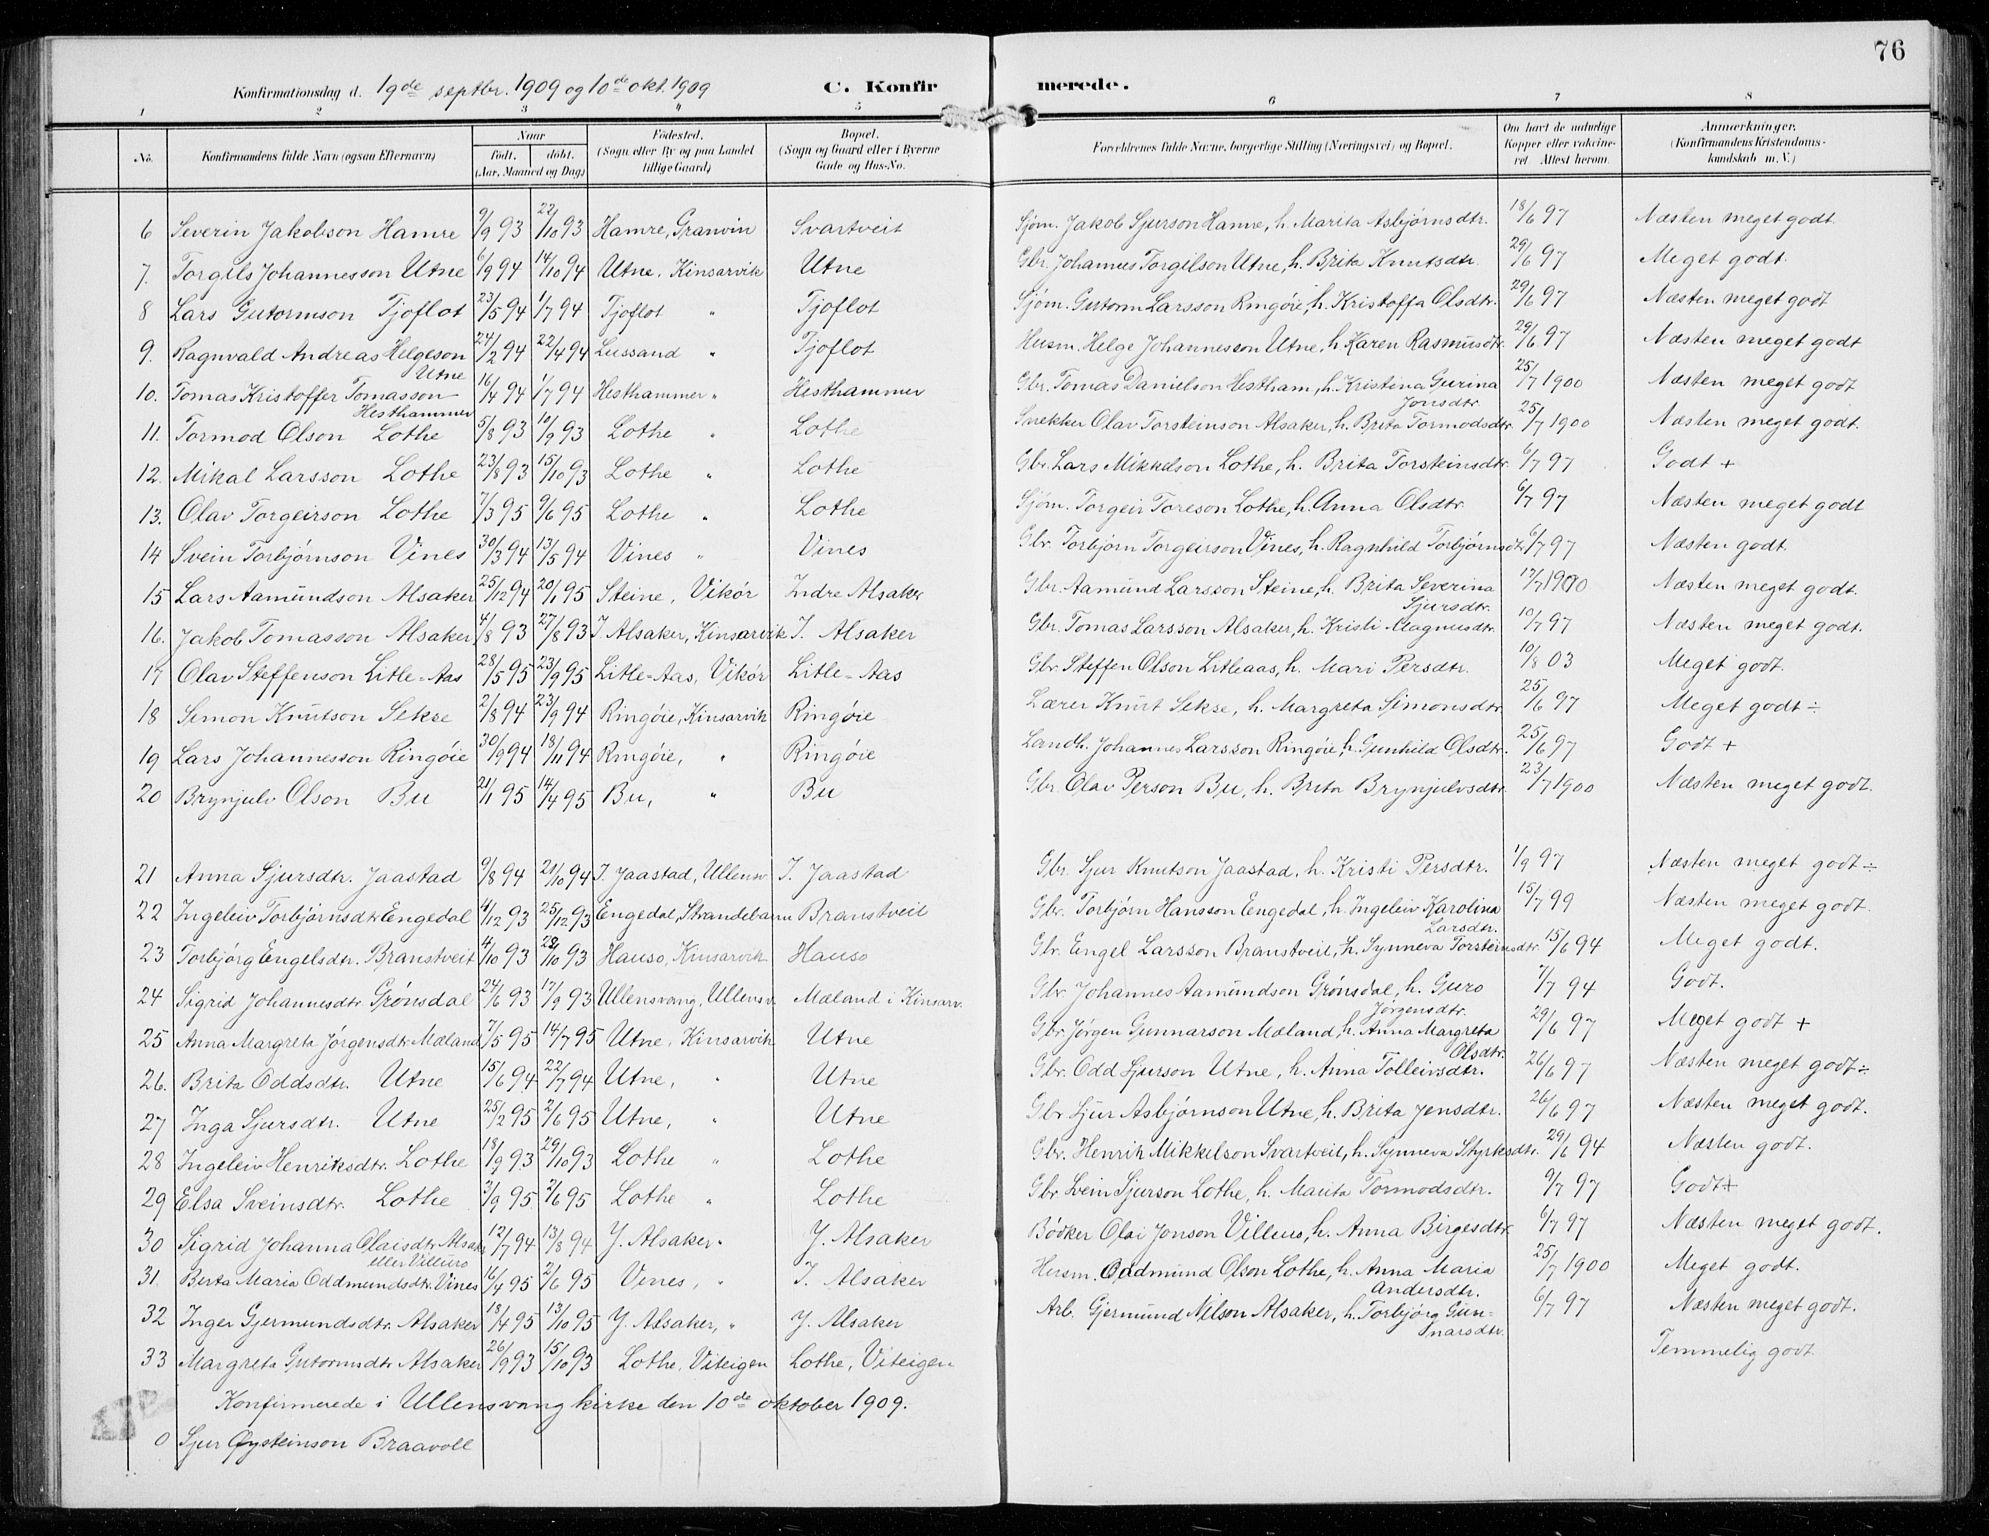 76
Konfirmationsdag d. 19de septbr. 1909 og 10de okt. 1909 C. Konfirmerede.
1 2 3 4 5 6 7 8
No. Konfirmandens fulde Navn (ogsaa Efternavn) Naar født. døbt. (Aar, Maaned og Dag) Fødested. (Sogn eller By og paa Landet tillige Gaard) Bopæl. (Sogn og Gaard eller i Byerne Gade og Hus-No. Forældrenes fulde Navne, borgerlige Stilling (Næringsvei) og Bopæl. Om havt de naturlige Kopper eller vakcineret Attest herom. Anmærkninger. (Konfirmandens Kristendomskundskab m. V.)
6 Severin Jakobson Hamre 9/9 93 22/10 93 Hamre, Granvin Svartveit Sjøm. Jakob Sjurson Hamre, h. Marita Asbjørnsdtr. 18/6 97 Næsten meget godt
7. Torgils Johannesson Utne 6/9 94 14/10 94 Utne, Kinsarvik Utne Gbr. Johannes Torgilson Utne, h. Brita Knutsdtr. 29/6 97 Meget godt.
8 Lars Gutormson Tjoflot 23/5 94 1/7 94 Tjoflot " Tjoflot Sjøm. Gutorm Larsson Ringøie, h. Kristoffa Olsdtr. 29/6 97 Næsten meget godt
9. Ragnvald Andreas Helgeson Utne 24/2 94 22/4 94 Lussand " Tjoflot Husm. Helge Johannesson Utne, h. Karen Rasmusdtr. 29/6 97 Næsten meget godt
10. Tomas Kristoffer Tomasson Hesthammer 16/4 94 1/7 94 Hesthammer " Hesthammer Gbr. Tomas Danielson Hestham, h. Kristina Gurina Jonsdtr. 25/7 1900 Næsten meget godt
11. Tormod Olson Lothe 5/8 93 10/9 93 Lothe " Lothe Snekker Olav Torsteinson Alsaker, h. Brita Tormodsdtr. 25/7 1900 Næsten meget godt.
12. Mikal Larsson Lothe 23/8 93 15/10 93 Lothe " Lothe Gbr. Lars Mikkelson Lothe, h. Brita Torsteinsdtr. 6/7 97 Godt +
13. Olav Torgeirson Lothe 7/3 95 9/6 95 Lothe " Lothe Sjøm. Torgeir Toreson Lothe, h. Anna Olsdtr. 6/7 97 Næsten meget godt
14 Svein Torbjørnson Vines 30/3 94 13/5 94 Vines " Vines Gbr. Torbjørn Torgeirson Vines, h. Ragnhild Torbjørnsdtr. 6/7 97 Næsten godt.
15 Lars Aamundson Alsaker 25/12 94 20/1 95 Steine, Vikør Indre Alsaker Gbr. Aamund Larsson Steine, h. Brita Severina Sjursdtr. 17/7 1900 Næsten meget godt.
16. Jakob Tomasson Alsaker 4/8 93 27/8 93 I. Alsaker, Kinsarvik I. Alsaker Gbr. Tomas Larsson Alsaker, h. Kristi Magnusdtr. 10/7 97 Næsten meget godt.
17 Olav Steffenson Litle-Aas 28/5 95 23/9 95 Litle-Aas, Vikør Litle-Aas Gbr. Steffen Olson Litleaas, h. Mari Persdtr. 10/8 03 Meget godt.
18 Simon Knutson Sekse 2/8 94 23/9 94 Ringøie, Kinsarvik Ringøie Lærer Knut Sekse, h. Margreta Simonsdtr. 25/6 97 Meget godt ÷
19 Lars Johannesson Ringøie 30/9 94 18/11 94 Ringøie, " Ringøie Landh. Johannes Larsson Ringøie, h. Gunhild Olsdtr. 25/6 97 Godt +
20 Brynjulv Olson Bu 21/1 95 14/4 95 Bu, " Bu Gbr. Olav Person Bu, h. Brita Brynjulvsdtr. 23/7 1900 Næsten meget godt.
21 Anna Sjursdtr. Jaastad 9/8 94 21/10 94 I. Jaastad, Ullensv. I. Jaastad Gbr. Sjur Knutson Jaastad, h. Kristi Persdtr. 1/9 97 Næsten meget godt ÷
22 Ingeleiv Torbjørnsdtr Engedal 4/12 93 25/12 93 Engedal, Strandebarm Branstveit Gbr. Torbjørn Hansson Engedal, h. Ingeleiv Karolina Larsdtr. 15/7 99 Næsten meget godt
23 Torbjørg Engelsdtr. Branstveit 4/10 93 22/10 93 Hauso, Kinsarvik Hauso Gbr. Engel Larsson Branstveit, h. Synneva Torsteinsdtr. 15/6 94 Meget godt.
24 Sigrid Johannesdtr Grønsdal 24/6 93 17/9 93 Ullensvang, Ullensv. Mæland i Kinsarv. Gbr. Johannes Aamundson Grønsdal, h. Guro Jørgensdtr. 7/7 94 Godt.
25 Anna Margreta Jørgensdtr. Mæland 7/5 95 14/7 95 Utne, Kinsarvik Utne Gbr. Jørgen Gunnarson Mæland, h. Anna Margreta Olsdtr. 29/6 97 Meget godt +
26. Brita Oddsdtr. Utne 15/6 94 22/7 94 Utne, " Utne Gbr. Odd Sjurson Utne, h. Anna Tolleivsdtr. 26/6 97 Næsten meget godt ÷
27 Inga Sjursdtr. Utne 25/2 95 2/6 95 Utne, " Utne Gbr. Sjur Asbjørnson Utne, h. Brita Jensdtr. 26/6 97 Næsten meget godt.
28 Ingeleiv Henriksdtr. Lothe 18/9 93 29/10 93 Lothe " Lothe Gbr. Henrik Mikkelson Svartveit, h. Synneva Styrksdtr. 29/6 94 Næsten godt.
29 Elsa Sveinsdtr. Lothe 3/9 95. 2/6 95 Lothe " Lothe Gbr. Svein Sjurson Lothe, h. Marita Tormodsdtr. 9/7 97 Godt +
30 Sigrid Johanna Olaisdtr Alsaker eller Villure 12/7 94 13/8 94 Y. Alsaker " Y. Alsaker Bødker Olai Jonson Villure, h. Anna Birgesdtr. 6/7 97 Næsten meget godt.
31. Berta Maria Oddmundsdtr. Vines 16/4 95 2/6 95 Vines, " I. Alsaker Husm. Oddmund Olson Lothe, h. Anna Maria Andersdtr. 25/7 1900 Meget godt.
32 Inger Gjermundsdtr. Alsaker 18/4 95 13/10 95 Y. Alsaker, " Y. Alsaker Arb. Gjermund Nilson Alsaker, h. Torbjørg Gunnarsdtr. 6/7 97 Næsten meget godt.
33 Margreta Gutormsdtr Alsaker 26/9 93 15/10 93 Lothe, Viteigen Lothe, Viteigen Temmelig godt
Konfirmerede i Ullensvang kirke den 10de oktober 1909.
0 Sjur Øysteinson Braavoll